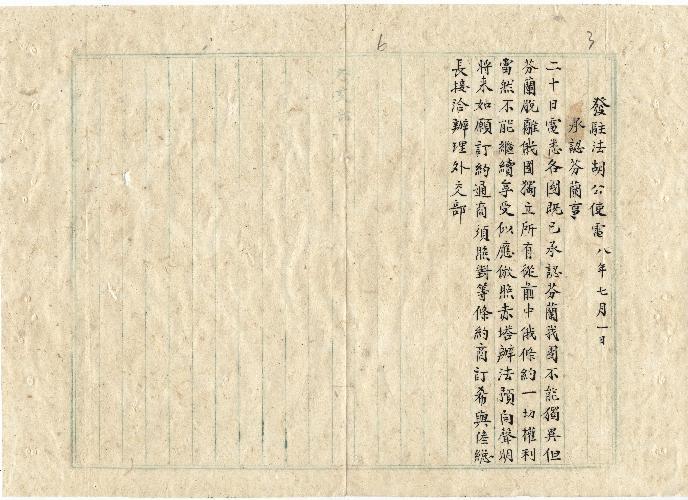 3
6
發駐法胡公使電 八年七月一日
承認芬蘭事
二十日電悉各國既已承認芬蘭我國不能獨異但
芬蘭脫離俄國獨立所有從前中俄條約一切權利
當然不能繼續享受似應倣照赤塔辦法預向聲明
將來如願訂約通商須照對等條約商訂希與陸總
長接洽辦理外交部